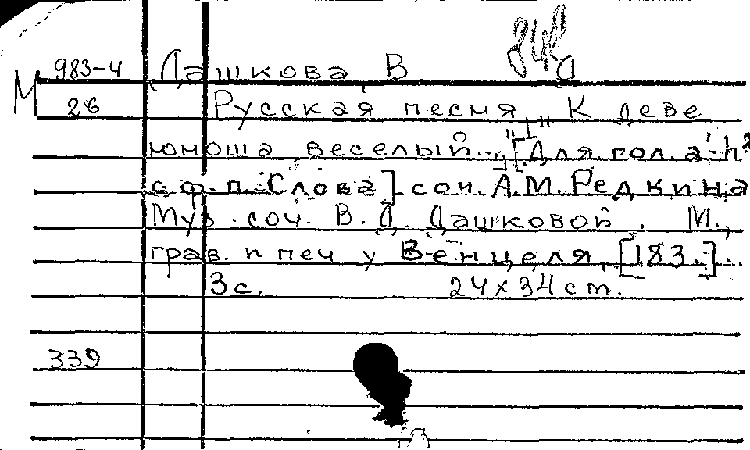 983-4 Дашкова, В. Д
М 26 Русская песня „К деве
юноша веселый...". [Для гол. a-h²
с ф.-п. Слова] соч. А.М. Редкина
Муз. соч. В. Д. Дашковой. М.,
грав. и печ. у Венцеля, [183.]..
3 с. 24х34 cm.
339